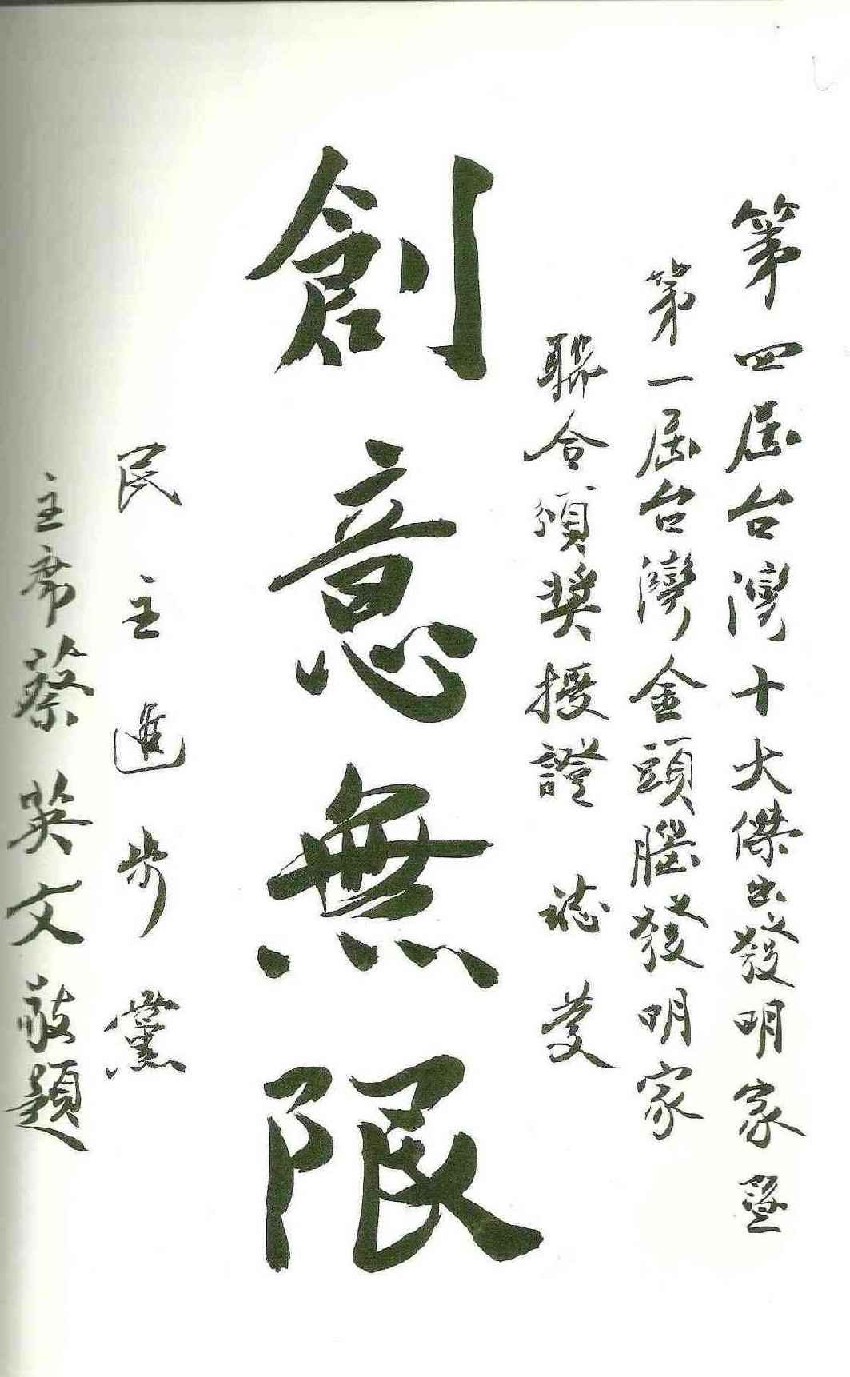 第四屆台灣十大傑出發明家暨
第一屆台灣金頭腦發明家
聯合頒獎授證 誌慶
創意無限
民主進步黨
主席蔡英文敬題